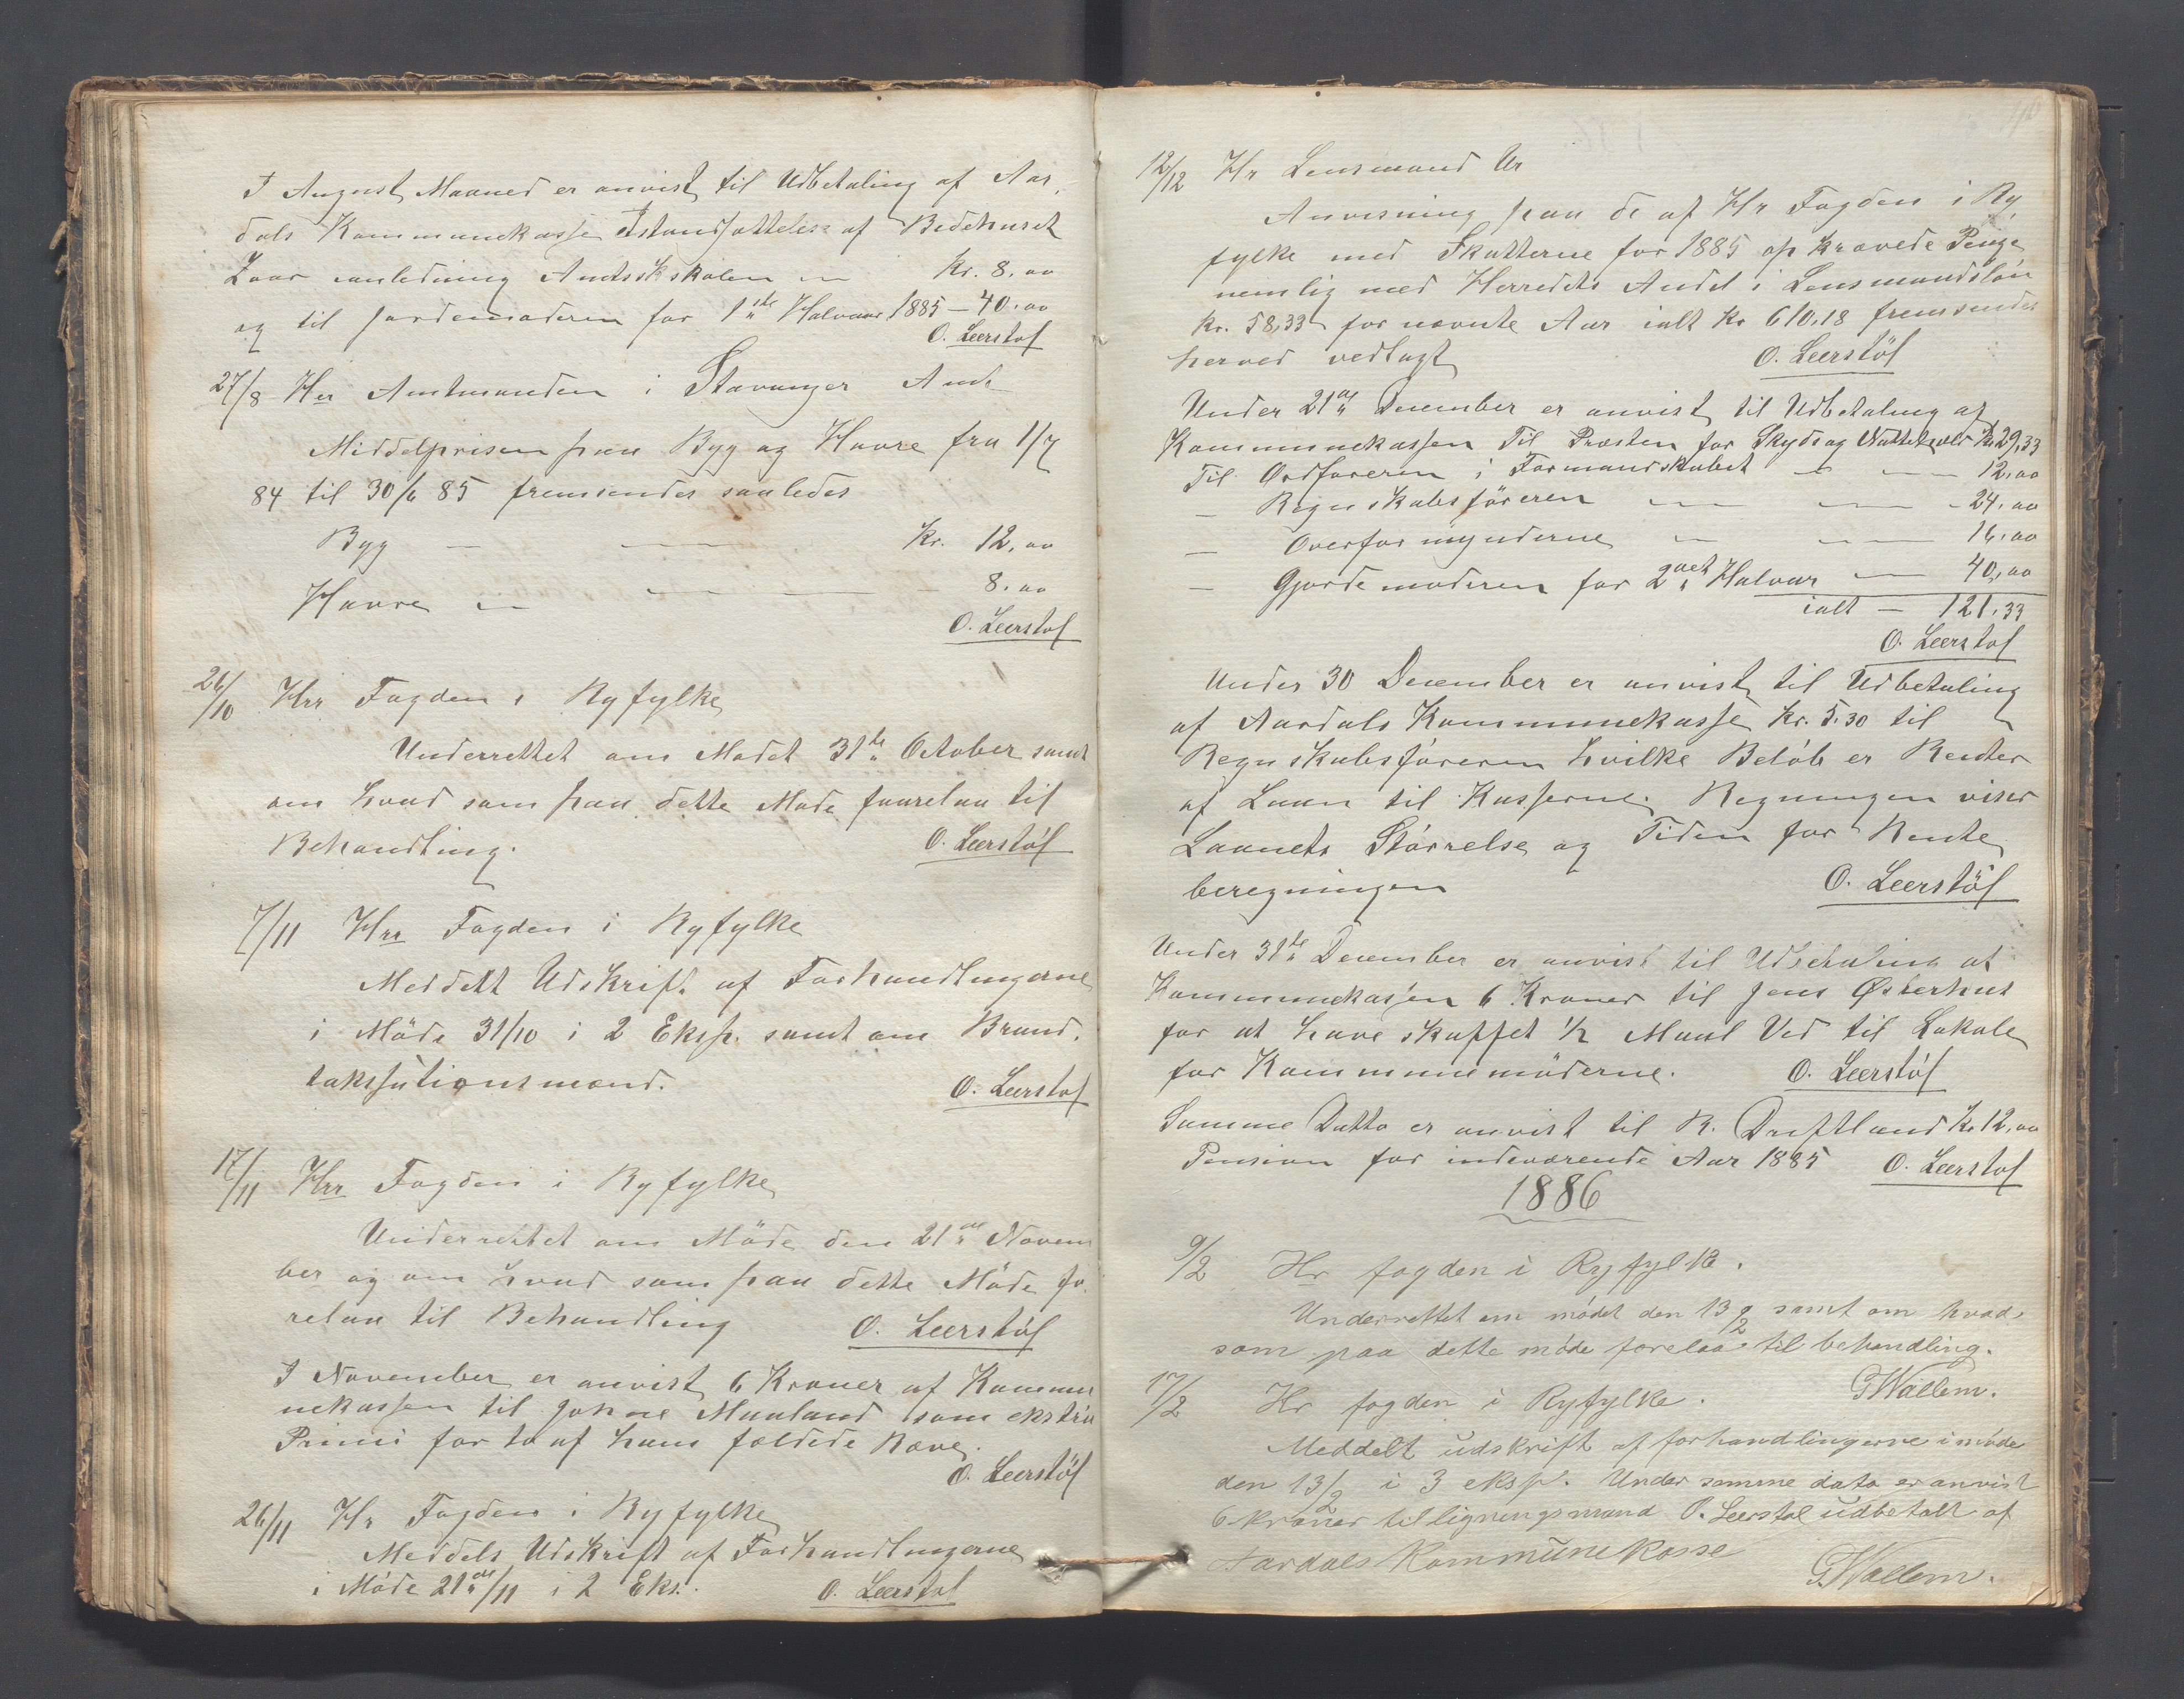 I August Maaned er anvist til Udbetaling af Aar-
dals Kommunekasse Istandsættelse af Bedehuset
Laar anledning Amtsskolen — Kr. 8.00
og til Jordemoderen for 1ste Halvaar 1885 — 40.00
O. Leerstøl
27/8 Hrr Amtmanden i Stavanger Amt
Middelprisen paa Byg og Havre fra 1/7
84 til 30/6 85 fremsendes saaledes
Byg — — Kr. 12,00
Havre — — — - 8.00
O. Leerstøl
26/10 Hrr Fogden i Ryfylke
Underrettet om Mødet 31te October samt
om hvad som paa dette Møde foorelaa til
Behandling. O. Leerstøl
7/11 Hrr Fogden i Ryfylke
Meddelt Udskrift af Forhandlingerne
i Möde 31/10 i 2 Eksp. samt om Brand.
takssationsmænd. O. Leerstøl
17/11 Hrr Fogden i Ryfylke
Underrettet om Möde den 21de Novem
ber og om hvad som paa dette Möde fo.
relaa til Behandling O. Leerstøl
I November er anvist 6 Kroner af Kommu
nekassen til Johne Maaland som ekstra
Primi for to af ham fældede Ræve.
O. Leerstöl
26/11 Hr Fogden i Ryfylke
Meddelt Udskrift af Forhandlingerne
i Møde 21de/11 i 2 Eks. O. Leerstøl
12/12 Hr Lensmand Ur
Anvisning paa de af Hr Fogden i Ry
fylke med Skatterne for 1885 op krævede Penge
nemlig med Herredets Andel i Lensmandsløn
Kr. 58,33 for nævnte Aar ialt Kr 610.18 fremsendes
herved vedlagt O. Leerstøl
Under 21de December er anvist til Udbetaling af
Kommunekassen Til Præsten for Skyds og Nattehold Kr 29,33
Til Ordføreren i Formandskabet — — 12,00
— Regnskabsføreren — — - 24.00
— Overformynderne — — 16.00
— Gjordemoderen for 2det Halvaar — 40,00
ialt — 121.33
O. Leerstøl
Under 30 December er anvist til Udbetaling
af Aardals Kommunekasse Kr. 5.30 til
Regnskabsføreren hvilke Beløb er Renter
af Laan til Kasserne. Regningen viser
Laanets Størrelse og Tiden for Rente
beregningen O. Leerstöl
Under 31te December er anvist til Udbetaling af
Kommunekassen 6 Kroner til Jens Østerhus
for at have skaffet 1/2 Maal Ved til Lokale
for Kommunemøderne. O. Leerstøl
Samme Datto er anvist til R. Kr 12,00
Pension for indeværende Aar 1885 O. Leerstøl
1886
9/2 Hr fogden i Ryfylke.
Underrettet om mödet den 13/2 samt om hvad
som paa dette möde forelaa til behandling.
GWallem.
17/2 Hr fogden i Ryfylke.
Meddelt udskrift af forhandlingerne i møde
den 13/2 i 3 eksp. Under samme dato er anvist
6 kroner til ligningsmand O. Leerstøl udbetalt af
Aardals Kommunekasse
GWallem.